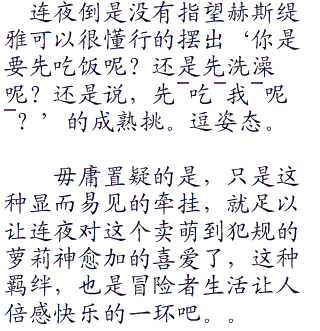 连夜倒是没有指望赫斯缇
雅可以很懂行的摆出‘你是
要先吃饭呢？还是先洗澡
呢？还是说，先¯吃¯我¯呢
¯？’的成熟挑。逗姿态。
毋庸置疑的是，只是这
种显而易见的牵挂，就足以
让连夜对这个卖萌到犯规的
萝莉神愈加的喜爱了，这种
羁绊，也是冒险者生活让人
倍感快乐的一环吧。。